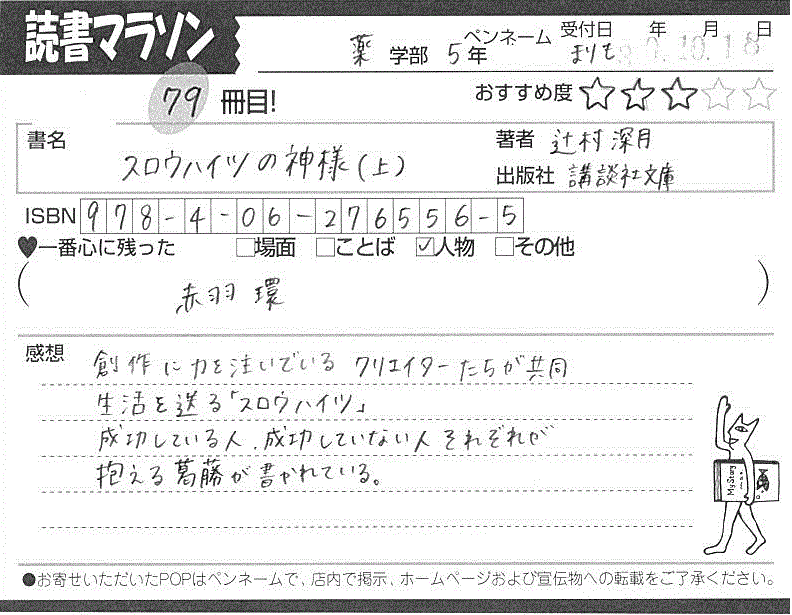 読書マラソン
受付日 年 月 日
薬 学部 5年 ペンネーム まりも
7.10.18
79 冊目!
おすすめ度 ☆☆☆☆☆
書名 スロウハイツの神様(上)
著者 辻村深月
出版社 講談社文庫
ISBN 978-4-06-276556-5
♥一番心に残った □場面 □ことば ☑人物 □その他
(赤羽 環)
感想
創作に力を注いでいる クリエイターたちが共同
生活を送る「スロウハイツ」
成功している人、成功していない人 それぞれが
抱える葛藤が書かれている。
My Story
●お寄せいただいたPOPはペンネームで、店内で掲示、ホームページおよび宣伝物への転載をご了承ください。